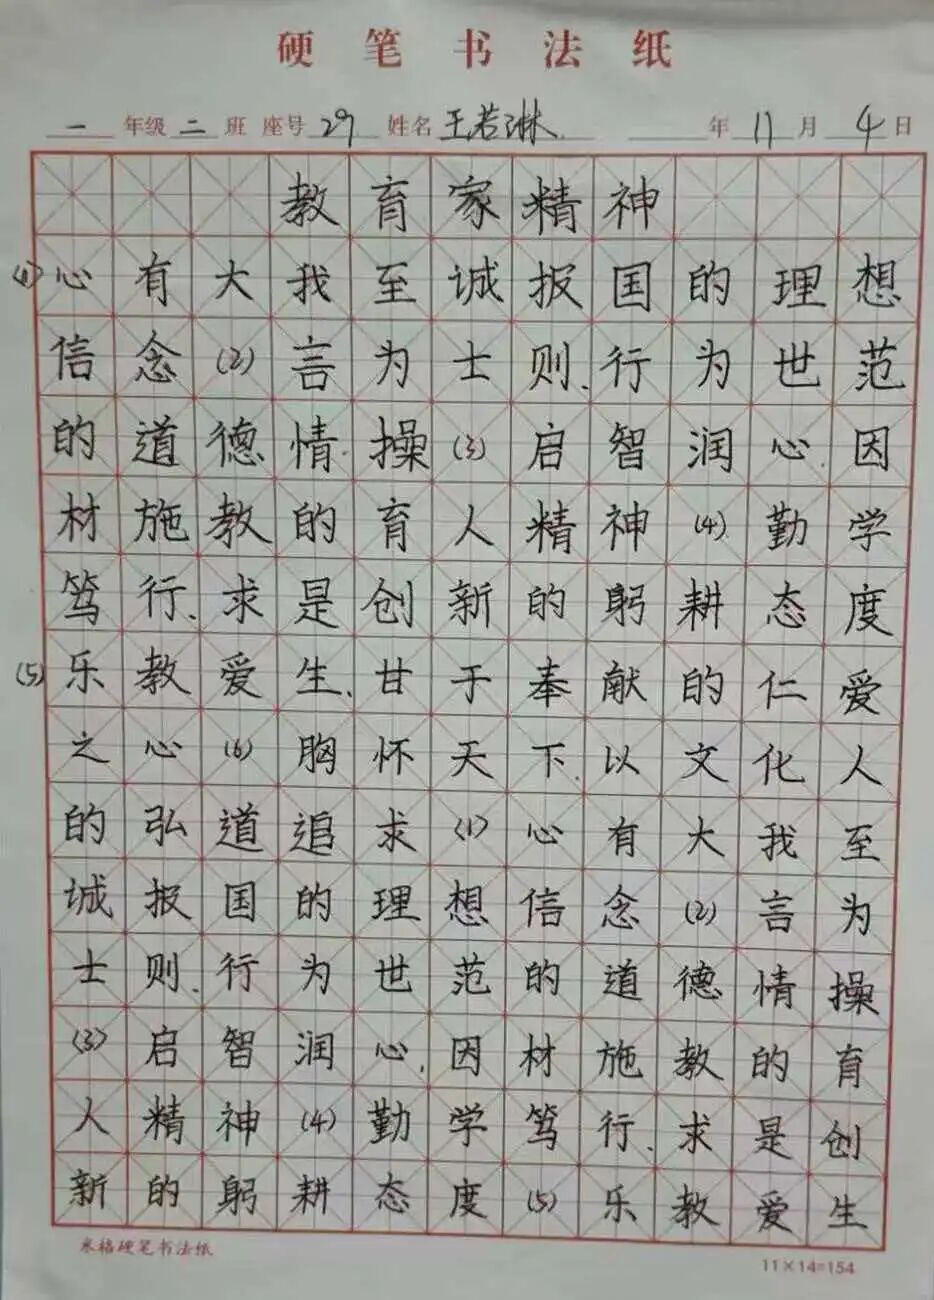 硬笔书法纸
一年级二班 座号29 姓名王若琳 年11月4日
教育家精神
(1)心有大我至诚报国的理想
信念(2)言为士则、行为世范
的道德情操(3)启智润心、因
材施教的育人精神(4)勤学
笃行、求是创新的躬耕态度
(5)乐教爱生、甘于奉献的仁爱
之心(6)胸怀天下、以文化人
的弘道追求(1)心有大我至
诚报国的理想信念(2)言为
士则、行为世范的道德情操
(3)启智润心、因材施教的育
人精神(4)勤学笃行、求是创
新的躬耕态度(5)乐教爱生
米格硬笔书法纸 11×14=154